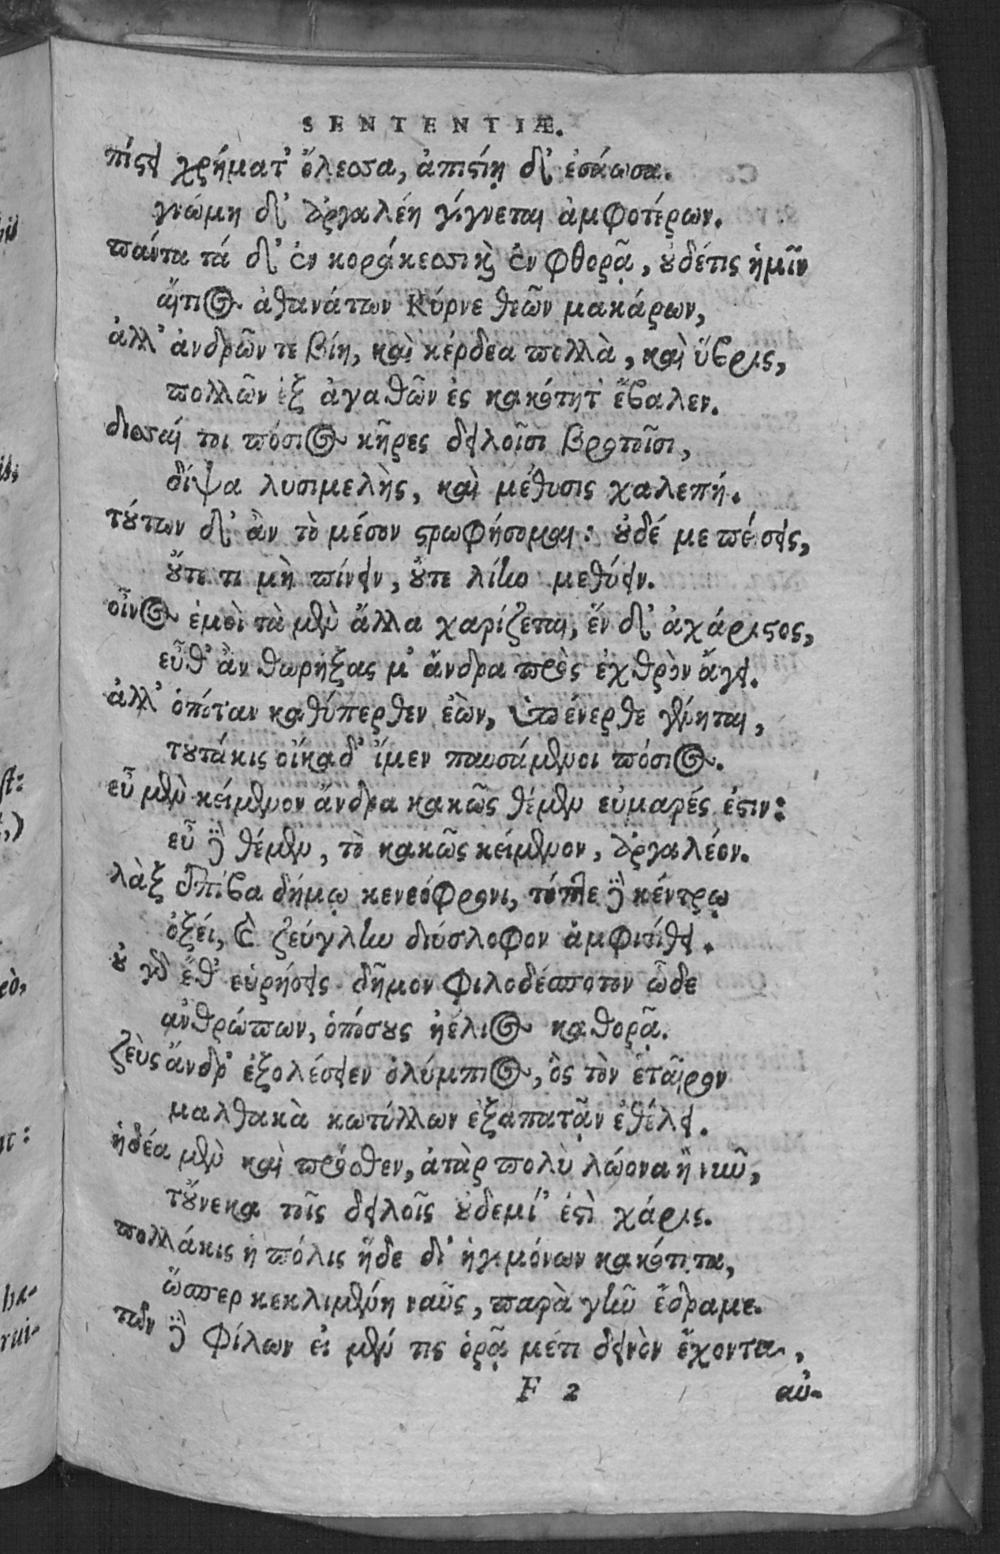 SENTENTIÆ.
πίστει χρήματ' ὄλεσσα, ἀπιστίῃ δ' ἐσάωσα.
γνώμη δ' ἀργαλέη γίγνεται ἀμφοτέρων.
πάντα τά δ' ἐν κοράκεσσι καὶ ἐν φθορᾷ, οὐδέτις ἡμῖν
αἴτιος ἀθανάτων Κύρνε θεῶν μακάρων,
ἀλλ' ἀνδρῶν τε βίη, καὶ κέρδεα πολλὰ, καὶ ὕβρις,
πολλῶν ἐξ ἀγαθῶν ἐς κακότητ' ἔβαλεν.
δισσαί τοι πόσιος κῆρες δειλοῖσι βροτοῖσι,
δίψα λυσιμελὴς, καὶ μέθυσις χαλεπή.
τούτων δ' ἂν τὸ μέσον στρωφήσομαι: οὐδέ με πείσεις,
οὔτε τι μὴ πίνειν, οὔτε λίην μεθύειν.
οἶνος ἐμοὶ τὰ μὲν ἄλλα χαρίζεται, ἕν δ' ἀχάριστος,
εὖθ' ἂν θωρήξας μ' ἄνδρα πρὸς ἐχθρὸν ἄγει.
ἀλλ' ὁπόταν καθύπερθεν ἐὼν, ὑπένερθε γένηται,
τουτάκις οἴκαδ' ἴμεν παυσάμενοι πόσιος.
εὖ μὲν κείμενον ἄνδρα κακῶς θέμεν εὐμαρές ἐστιν:
εὖ δὲ θέμεν, τὸ κακῶς κείμενον, ἀργαλέον.
λὰξ ἐπίβα δήμῳ κενεόφρονι, τύπτε δὲ κέντρῳ
ὀξέι, καὶ ζεύγλην δύσλοφον ἀμφιτίθει.
οὐ γὰρ ἔθ' εὑρήσεις δῆμον φιλοδέσποτον ὧδε
ἀνθρώπων, ὁπόσους ἠέλιος καθορᾷ.
Ζεὺς ἄνδρ' ἐξολέσειεν ὀλύμπιος, ὃς τὸν ἑταῖρον
μαλθακὰ κωτίλλων ἐξαπατᾷν ἐθέλει.
ᾔδεα μὲν καὶ πρόσθεν, ἀτὰρ πολὺ λώονα ἢ νῦν,
τοὔνεκα τοῖς δειλοῖς οὐδεμί' ἐστὶ χάρις.
πολλάκις ἡ πόλις ἥδε δι' ἡγεμόνων κακότητα,
ὥσπερ κεκλιμένη ναῦς, παρὰ γῆν ἔδραμε.
τῶν δὲ φίλων εἰ μέν τις ὁρᾷ μέτι δεινὸν ἔχοντα,
F 2 αὐ-